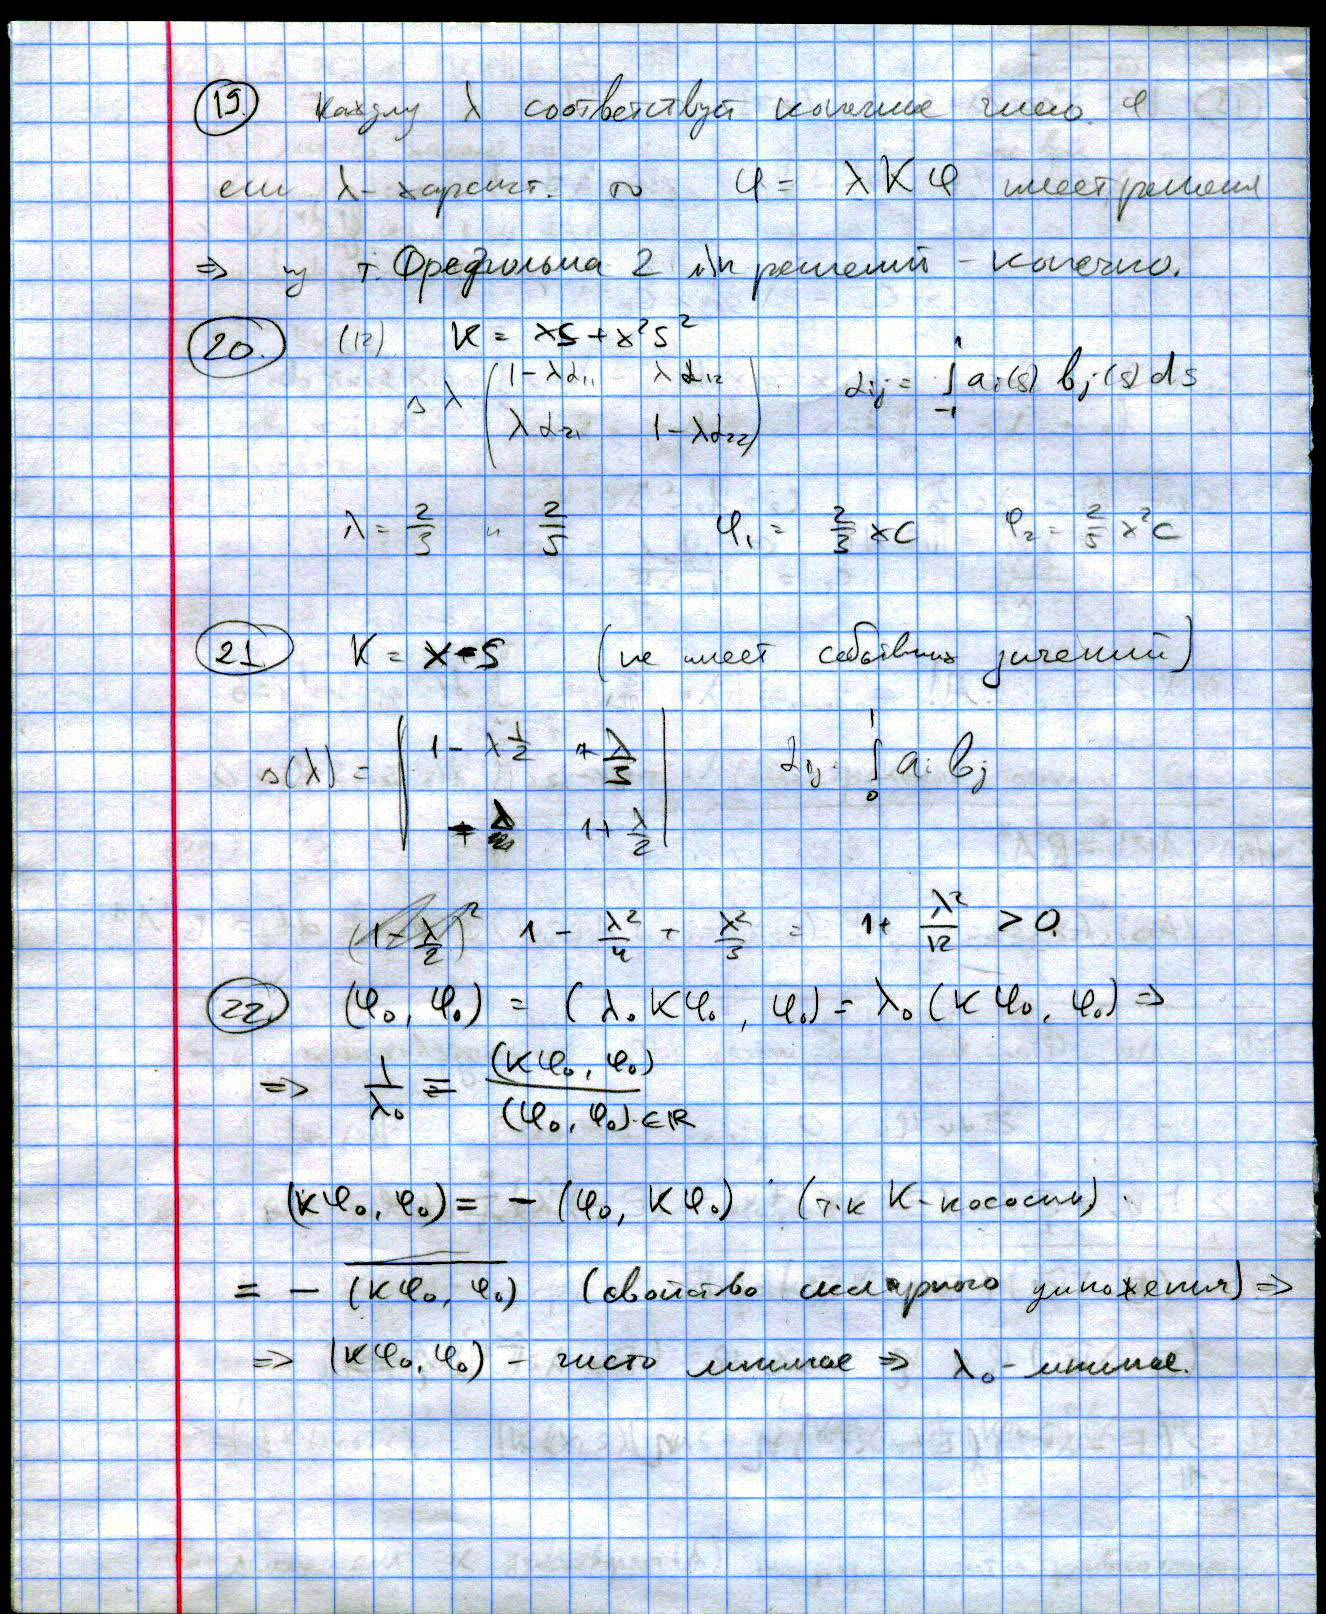 19. Каждому λ соответствует конечное число φ
если λ - характ. то φ = λKφ имеет решения
⇒ из т. Фредгольма 2 л/н решений - конечно.
20. (12) K = xs + x²s²
Δλ (1-λα₁₁ λα₁₂ αᵢⱼ = ∫₋₁¹ aᵢ(s) bⱼ(s) ds
λα₂₁ 1-λα₂₂)
λ = 2/3 и 2/5 φ₁ = 2/3 xC φ₂ = 2/5 x²C
21 K = x-s (не имеет собственных значений)
Δ(λ) = | 1 - λ 1/2 + λ/3 | αᵢⱼ = ∫₀¹ aᵢ bⱼ
1 + λ/2
(1-λ/2)² 1 - λ²/4 + λ²/3 = 1 + λ²/12 > 0.
22. (φ₀, φ₀) = (λ₀Kφ₀, φ₀) = λ₀(Kφ₀, φ₀) ⇒
⇒ 1/λ₀ = (Kφ₀, φ₀)/(φ₀, φ₀) ∈ ℝ
(Kφ₀, φ₀) = - (φ₀, Kφ₀) (т.к K - кососим).
= - \overline{(Kφ₀, φ₀)} (свойство скалярного умножения) ⇒
⇒ (Kφ₀, φ₀) - чисто мнимое ⇒ λ₀ - мнимое.